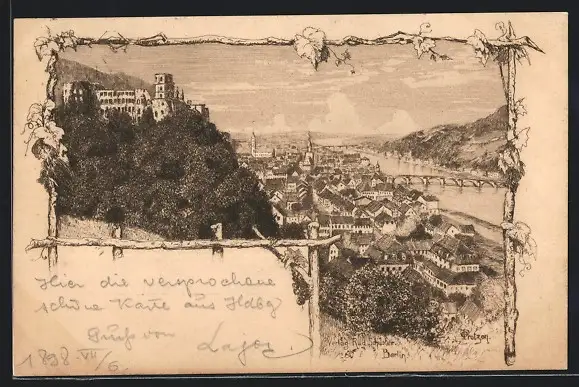 Hier die versprochene
schöne Karte aus Hdbg
Gruß von Lajos.
1898 VII/6.
Verlag Rud. Schuster
Berlin
Mutzen